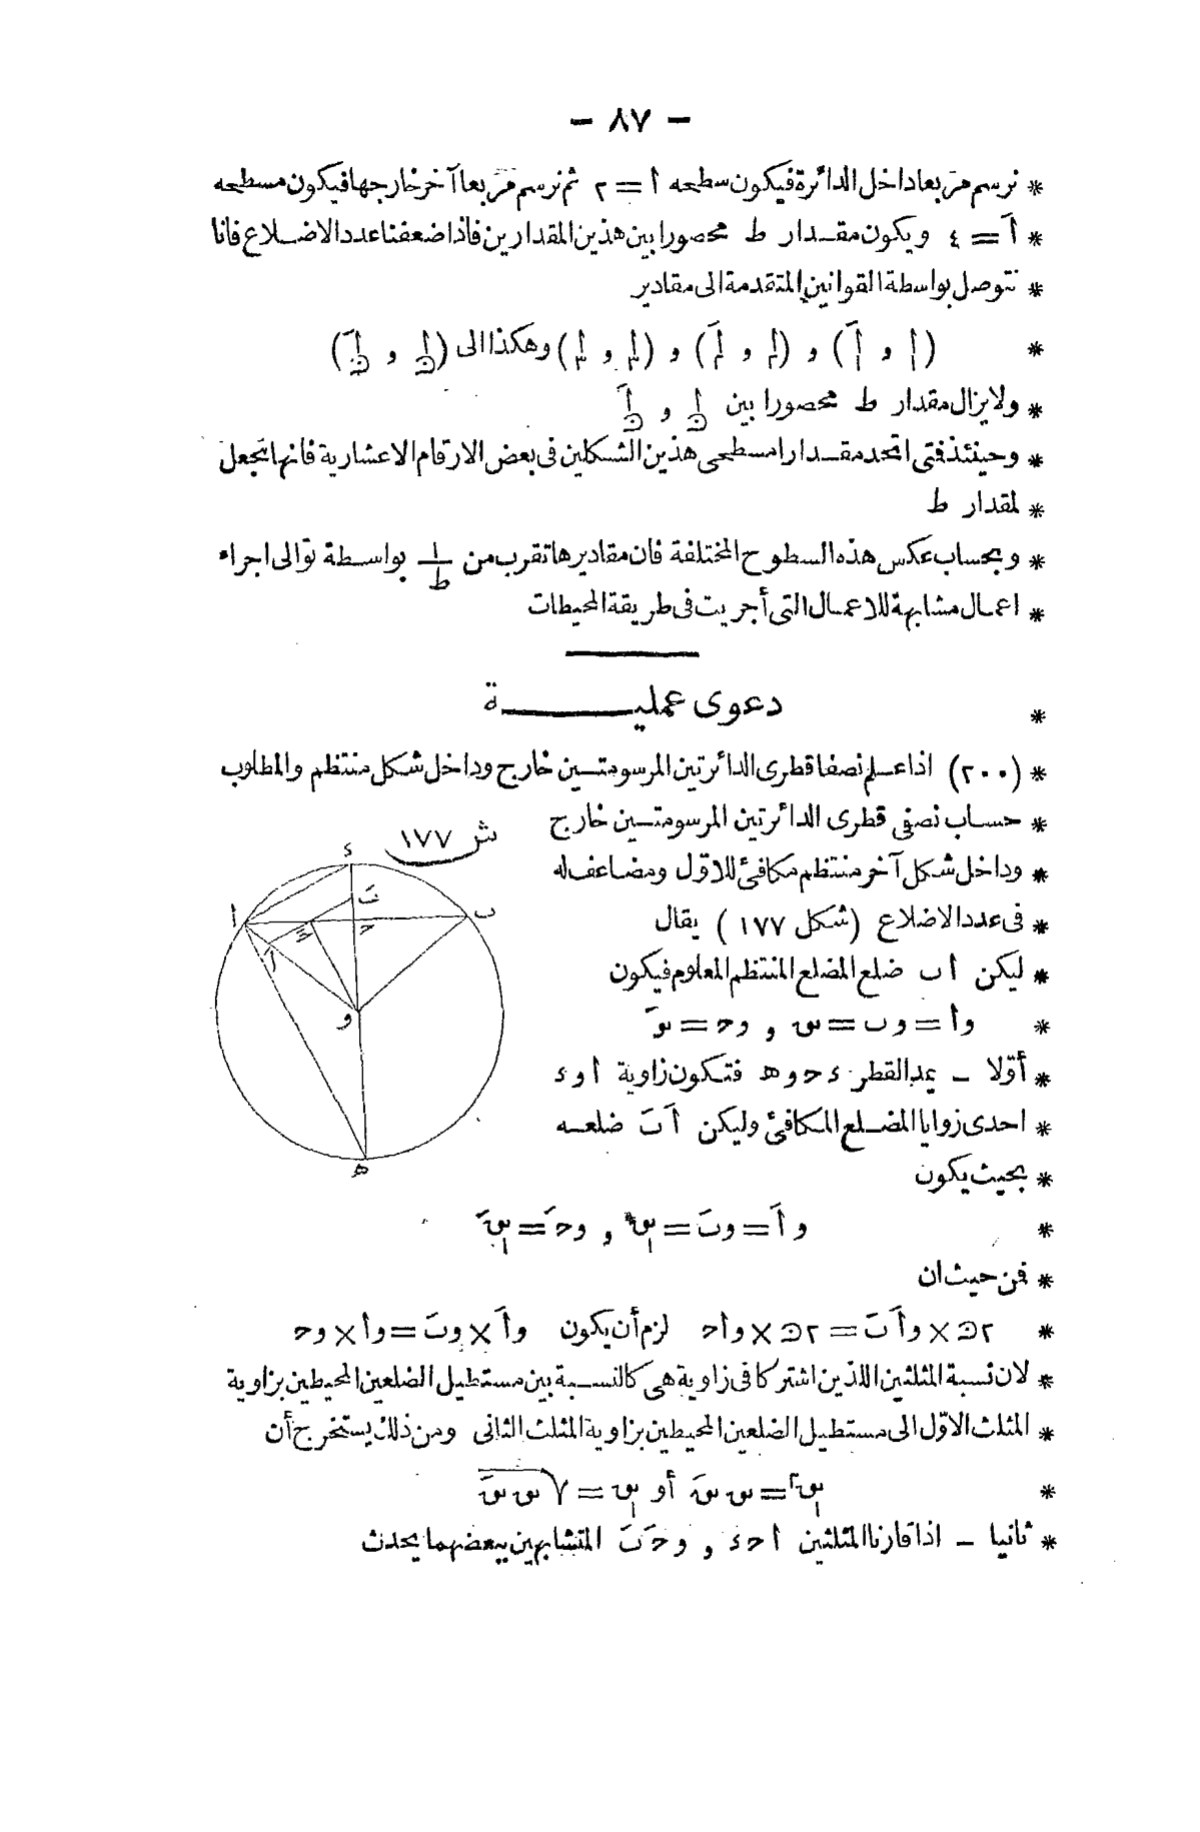 - ٨٧ -
* نرسم مربعا داخل الدائرة فيكون سطحه أ = ٢ ثم نرسم مربعا آخر خارجها فيكون مسطحه
* أَ = ٤ ويكون مقدار ط محصورا بين هذين المقدارين فاذا ضعفنا عدد الاضلاع فانا
* نتوصل بواسطة القوانين المتقدمة الى مقادير
* (أ١ و أَ١) و (أ٢ و أَ٢) و (أ٣ و أَ٣) وهكذا الى (أن و أَن)
* ولا يزال مقدار ط محصورا بين أن و أَن
* وحينئذ فتى اتحد مقدارا مسطحى هذين الشكلين فى بعض الارقام الاعشارية فانها تجعل
* لمقدار ط
* وبحساب عكس هذه السطوح المختلفة فان مقاديرها تقرب من ١/ط بواسطة توالى اجراء
* اعمال مشابهة للاعمال التى أجريت فى طريقة المحيطات
* دعوى عملية
* (٢٠٠) اذا علم نصفا قطرى الدائرتين المرسومتين خارج وداخل شكل منتظم والمطلوب
* حساب نصفى قطرى الدائرتين المرسومتين خارج
* وداخل شكل آخر منتظم مكافئ للاوّل ومضاعف له
* فى عدد الاضلاع (شكل ١٧٧) يقال
* ليكن ا ب ضلع المضلع المنتظم المعلوم فيكون
* وا = وب = س و وح = سَ
* أوّلا - يمد القطر ء ح و ه فتكون زاوية ا و ء
* احدى زوايا المضلع المكافئ وليكن اَ بَ ضلعه
* بحيث يكون
* و اَ = و بَ = س١ و و حَ = سَ١
* فمن حيث ان
* ٢ن × و اَ بَ = ٢ن × و ا ح لزم أن يكون و اَ × و بَ = و ا × و ح
* لان نسبة المثلثين اللذين اشتركا فى زاوية هى كالنسبة بين مستطيل الضلعين المحيطين بزاوية
* المثلث الاوّل الى مستطيل الضلعين المحيطين بزاوية المثلث الثانى ومن ذلك يستخرج أن
* س١٢ = س سَ أو س١ = √س سَ
* ثانيا - اذا قارنا المثلثين ا ح ء و و حَ بَ المتشابهين ببعضهما يحدث
ش ١٧٧
ء
بَ
ا
ب
ح
حَ
اَ
و
ه